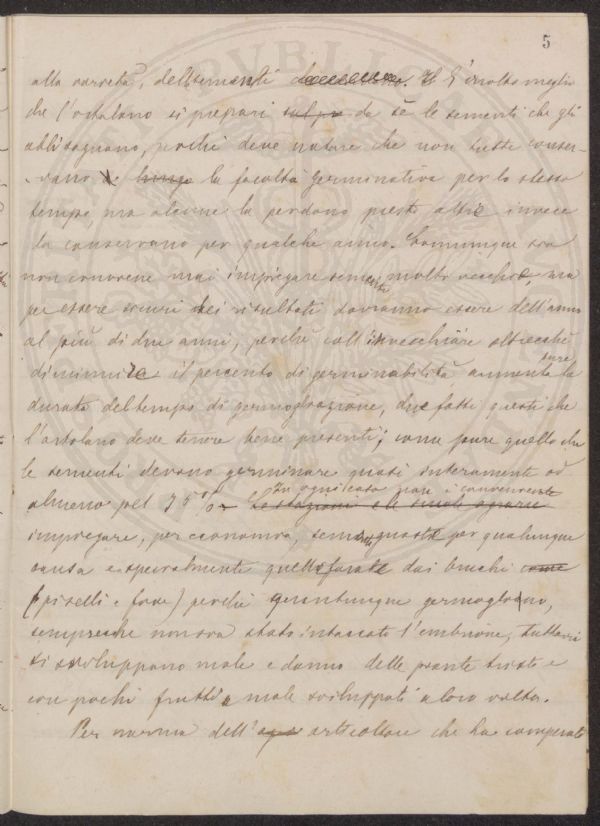 5
alla varietà, delle sementi. È molto meglio
che l'ortolano si prepari sulpo da sè le sementi che gli
abbisognano, perchè deve notare che non tutte conser-
vano a lungo la facoltà germinativa per lo stesso
tempo, ma alcune la perdono presto altre invece
la conservano per qualche anno. Comunque sia
non conviene mai impiegare sementi molto vecchie, ma
per essere sicuri dei risultati dovranno essere dell'anno
al più di due anni, perchè coll'invecchiare oltrecchè
diminuire il percento di germinabilità aumenta pure la
durata del tempo di germogliazione, due fatti questi che
l'ortolano deve tenere bene presenti; come pure quello che
le sementi devono germinare quasi interamente od
almeno pel 75%. Le stagioni e le
In ogni caso non è conveniente
impiegare, per economia, sementi guaste per qualunque
causa e specialmente quelle forate dai bruchi come
(piselli e fave) perchè quantunque germogliano,
sempreche non sia stato intaccato l'embrione, tuttavia
si sviluppano male e danno delle piante triste e
con pochi frutti e male sviluppati a loro volta.
Per norma dell' orticoltore che ha comperato